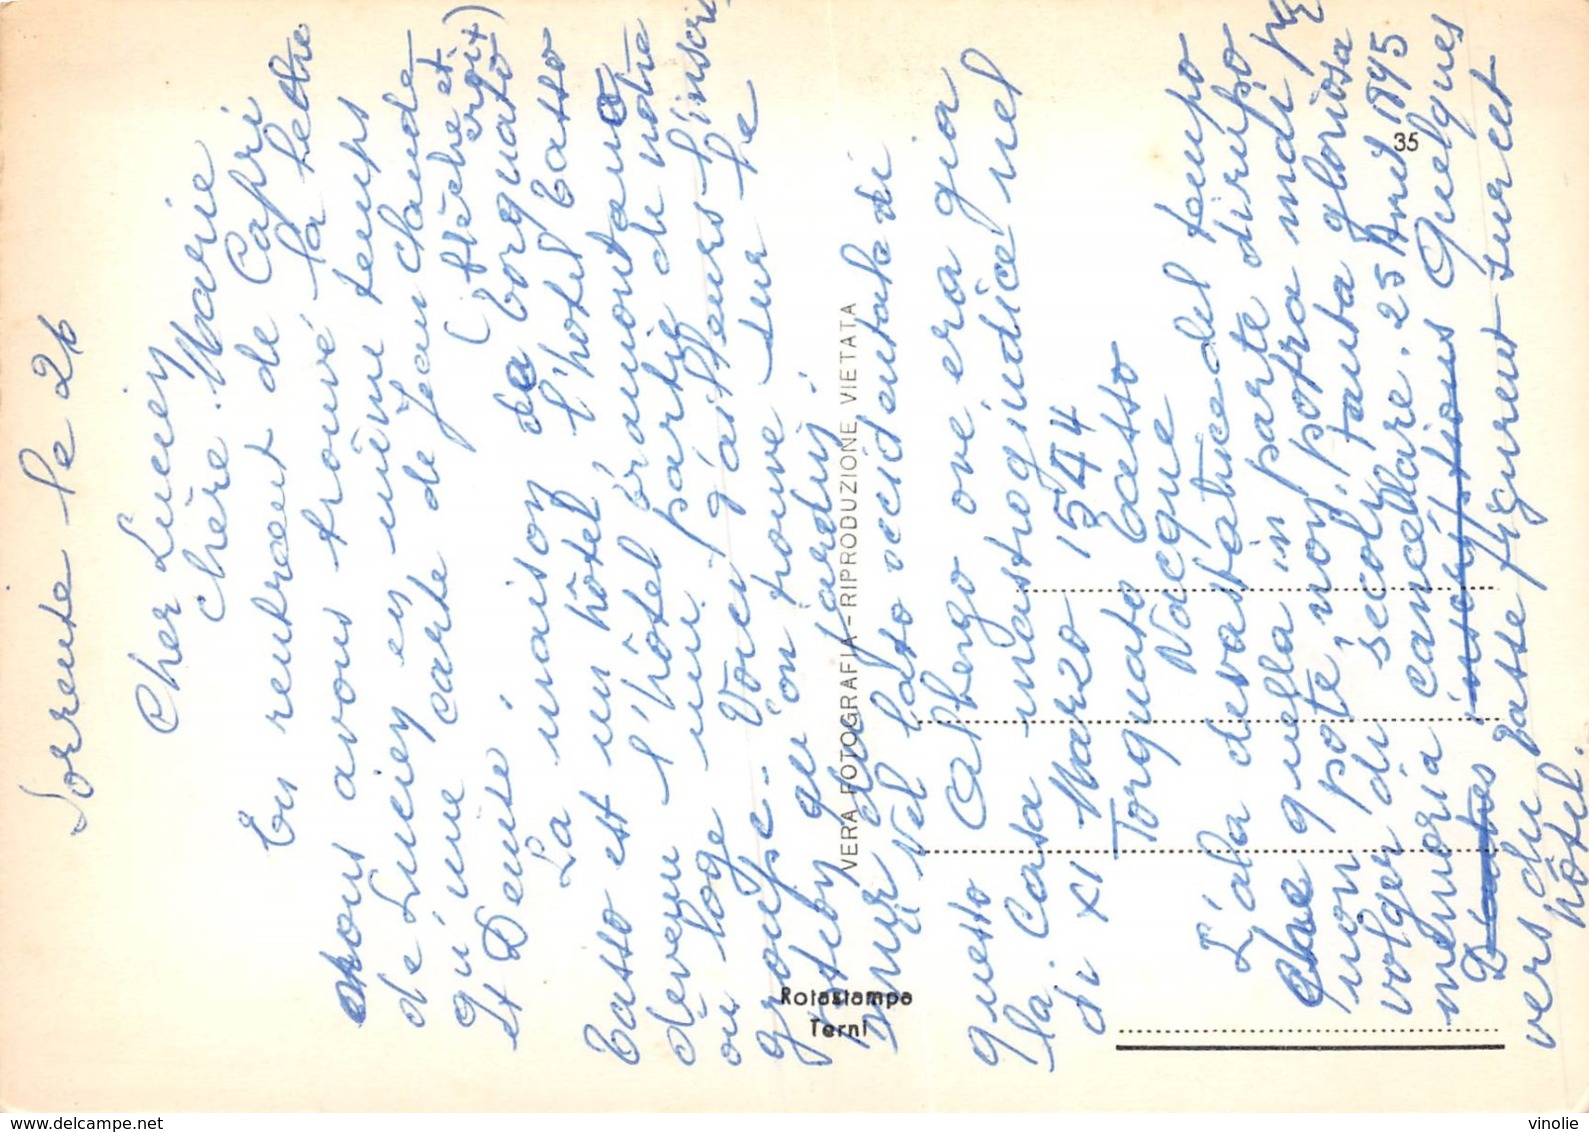 Sorrente le 26
Cher Lucien
Chère Marie
En rentrant de Capri
nous avons trouvé la lettre
de Lucien en même temps
qu'une carte de Jean Claude
et Denise.
La maison de Torquato
Tasso est un hôtel, l'hotel Tasso
devenu l'hôtel Tramontano
où loge une partie de notre
groupe. Voici d'ailleurs l'inscrip
qu'on trouve sur le
mur du jardin :
Nel lato occidentale di
questo Albergo ove era già
la Casa Mastrogiudice nel
di XI Marzo 1544
Torquato Tasso
Nacque
L'ala devastatrice del tempo
che quella in parte dirupo
non pote, non potra mai pe
volger di secoli, tanta gloriosa
memoria cancellare. 25 1895
D'autres inscriptions Quelques
vers du Tasse figurent sur cet
hôtel.
VERA FOTOGRAFIA - RIPRODUZIONE VIETATA
35
Rotastampa
Terni
www.delcampe.net
vinolie